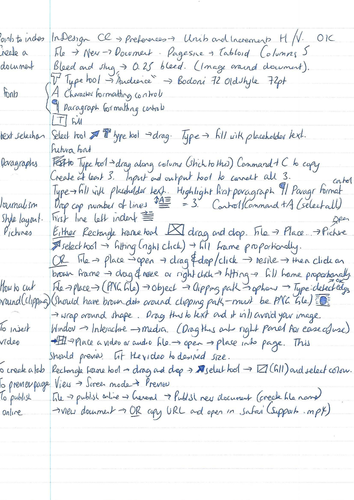 Points to inches InDesign CC → Preferences → Units and Increments H/V. OK
Create a File → New → Document. Pagesize → Tabloid Columns 5
document Bleed and Slug → 0.25 bleed. (Image around document).
T Type tool → "Audience" → Bodoni 72 Oldstyle 72pt
Fonts A Character formatting controls
¶ Paragraph formatting controls
T Fill
text selection Select tool T type tool → drag. Type → Fill with placeholder text.
Futura font
Paragraphs Type tool → drag along column (stick to this) Command + C to copy
Create at least 3. Input and output tool to connect all 3.
Type → fill with placeholder text. Highlight first paragraph ¶ Paragr format control
Journalism Drop cap number of lines = 3 Control/Command + A (select all)
Style layout. First line left indent
Pictures Either Rectangle frame tool drag and drop. File → Place → Picture open
select tool → fitting (right click) → fill frame proportionally.
OR File → place → open → drag & drop/click → resize → then click on
brown frame → drag & resize or right click → fitting → fill frame proportionally
How to cut File → place → (PNG file) → Object → clipping path → options → Type: detect edges
around (clipping) (Should have brown dots around clipping path - must be PNG file)
→ wrap around shape. Drag this to text and it will avoid your image.
To insert Window → Interactive → media. (Drag this onto right panel for ease of use)
video → Place a video or audio file → open → place into page. Thus
should preview. Fit the video to desired size.
To create a tab Rectangle frame tool → drag and drop → select tool → (fill) and select colour.
To preview page View → Screen mode → Preview
To publish File → publish online → General → Publish new document (create file name)
online → view document → OR copy URL and open in safari (supports .mp4)